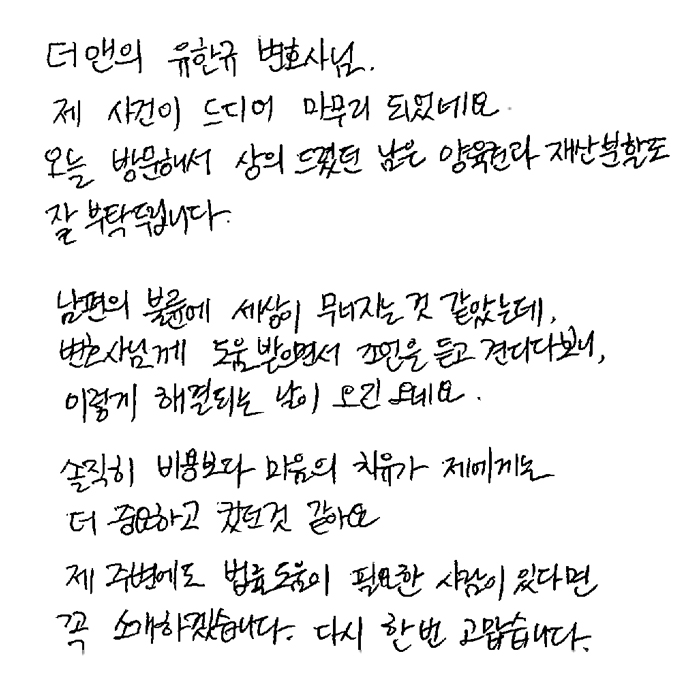 더앤의 유한규 변호사님.
제 사건이 드디어 마무리 되었네요.
오늘 방문해서 상의 드렸던 남은 양육권과 재산분할도
잘 부탁드립니다.
남편의 불륜에 세상이 무너지는것 같았는데,
변호사님께 도움 받으면서 조언을 듣고 견디다보니,
이렇게 해결되는 날이 오긴 오네요.
솔직히 비용보다 마음의 치유가 제에게는
더 중요하고 컸던것 같아요
제 주변에도 법률도움이 필요한 사람이 있다면
꼭 소개하겠습니다. 다시 한번 고맙습니다.